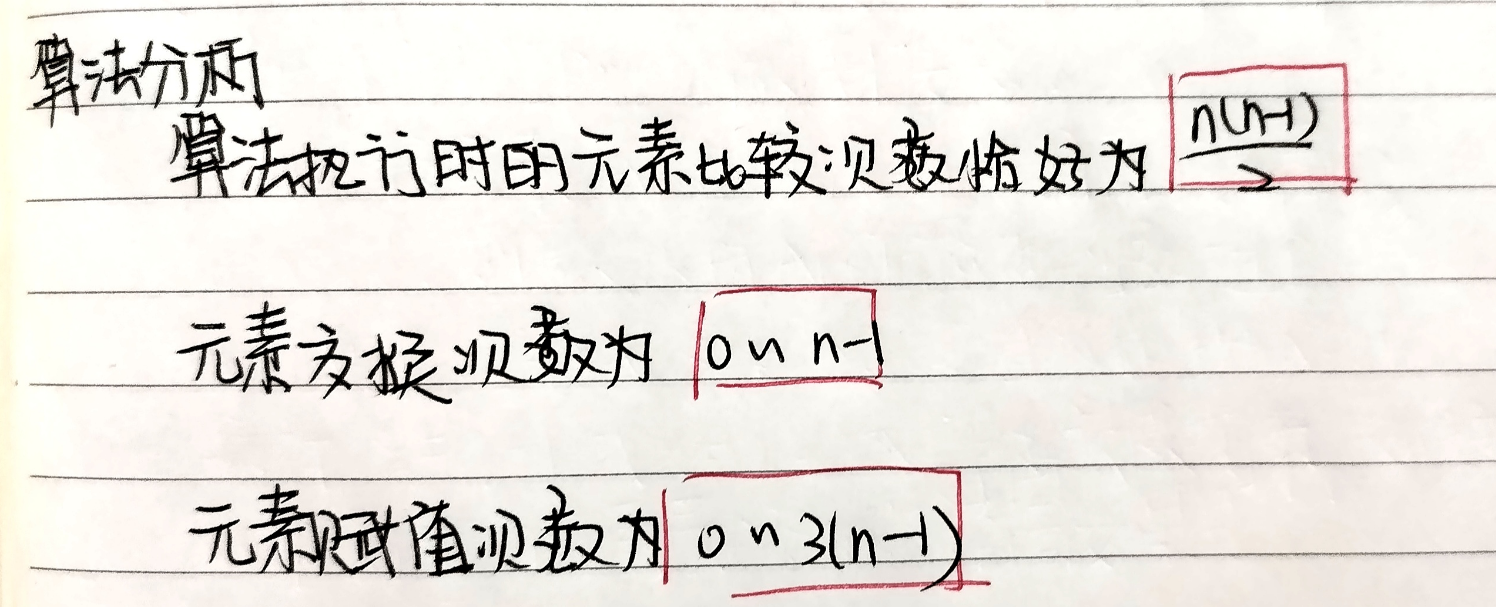 算法分析
算法执行时的元素比较次数恰好为 n(n-1)/2
元素交换次数为 0 ~ n-1
元素赋值次数为 0 ~ 3(n-1)